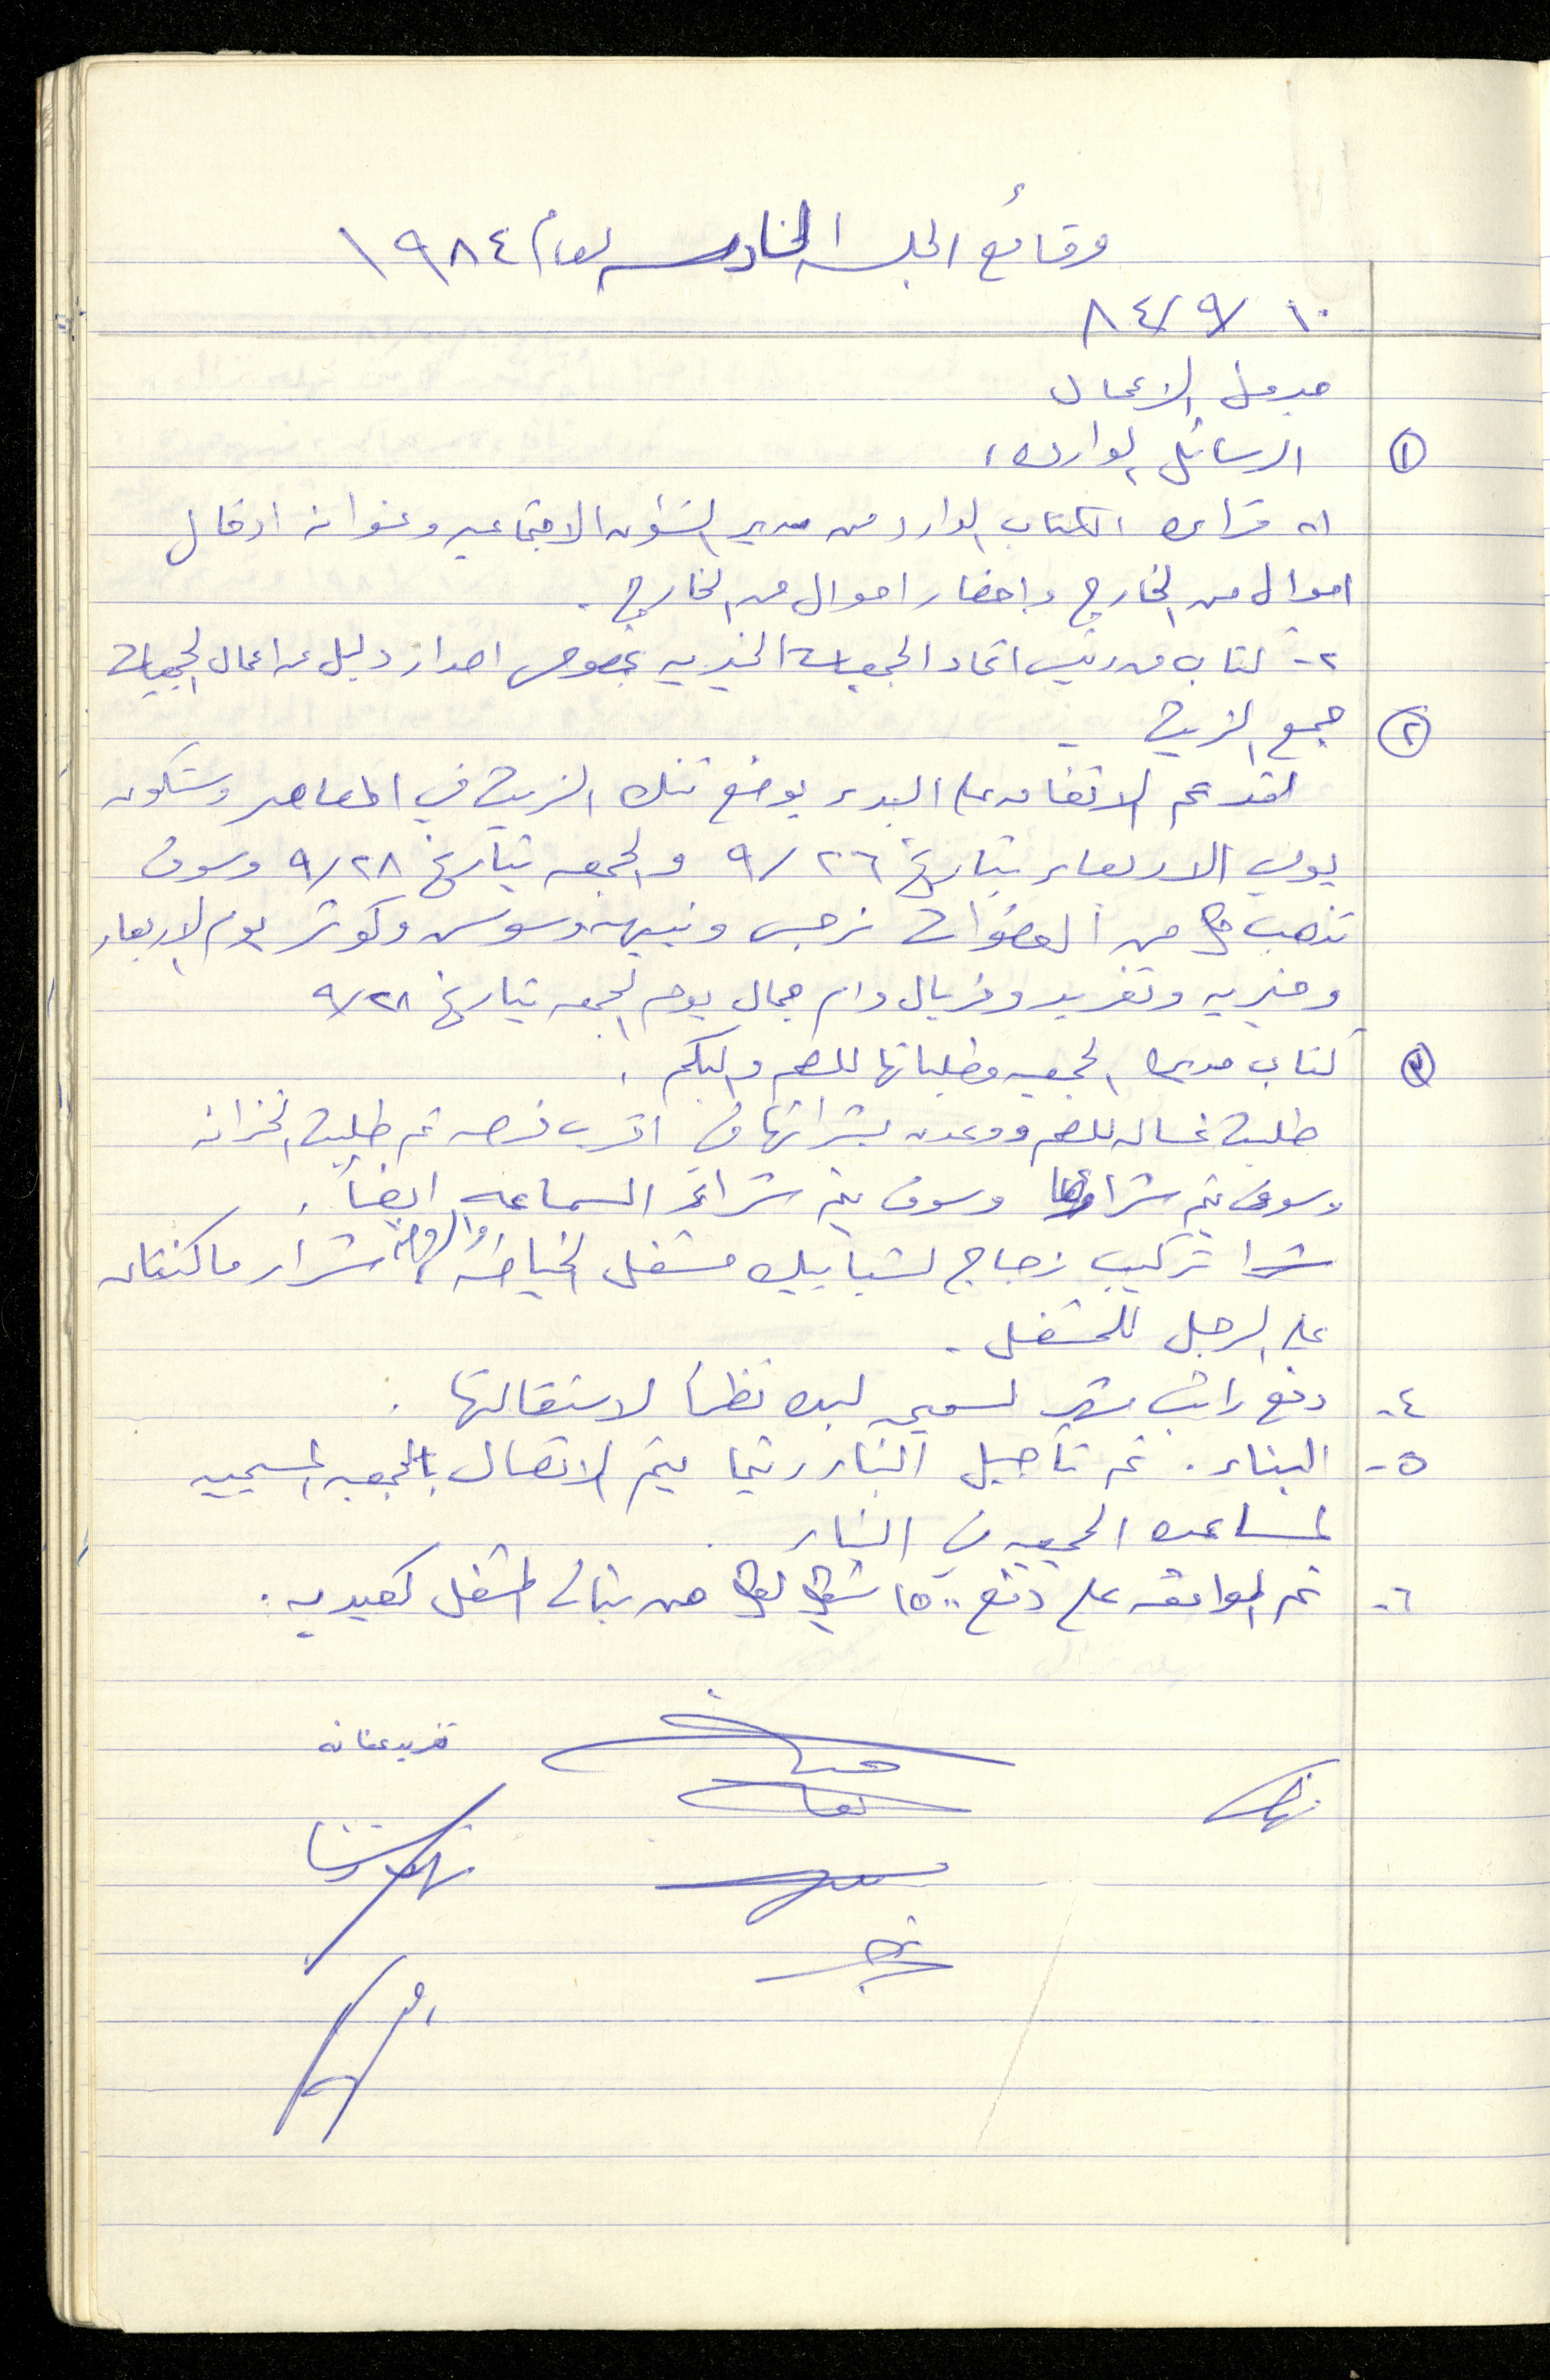 وقائع الجلسه السادسه لعام ١٩٨٤
١٠/٩/٨٤
جدول الاعمال
① الرسائل الوارده
١- قراءه الكتاب الوارد من مدير الشؤون الاجتماعيه وعنوانه ادخال
اموال من الخارج واحضار اموال من الخارج.
٢- كتاب من رئيس اتحاد الجمعيات الخيريه بخصوص اصدار دليل عن اعمال الجمعيات
② جمع الزيت
لقد تم الاتفاق على البدء بوضع تنك الزيت في المعاصر وستكون
يومي الاربعاء بتاريخ ٢٦/٩ والجمعه بتاريخ ٢٨/٩ وسوف
تذهب كل من العضوات نرجس ونبيهه وسوسن وكوثر يوم الاربعاء
وخيريه وتغريد وفريال وام جمال يوم الجمعه بتاريخ ٢٨/٩
③ كتاب مديره الجمعيه وطلباتها للصم والبكم.
طلبت غساله للصم ووعدت بشرائها في اقرب فرصه تم طلبت الخزانه
وسوف يتم شراؤها وسوف يتم شراء السماعه ايضاً.
تركيب زجاج لشبابيك مشغل الخياطه والروضه، شراء ماكنتان
على الرجل للمشغل.
٤- دفع راتب شهر لسميحه لبده نظراً لاستقالتها.
٥- البناء. تم تأجيل البناء ريثما يتم الاتصال بالجمعيه المسيحيه
لمساعده الجمعيه في البناء.
٦- تم الموافقه على دفع ١٥٠٠ شيكل لكل من بنات المشغل كعيديه.
تغريد عنانه